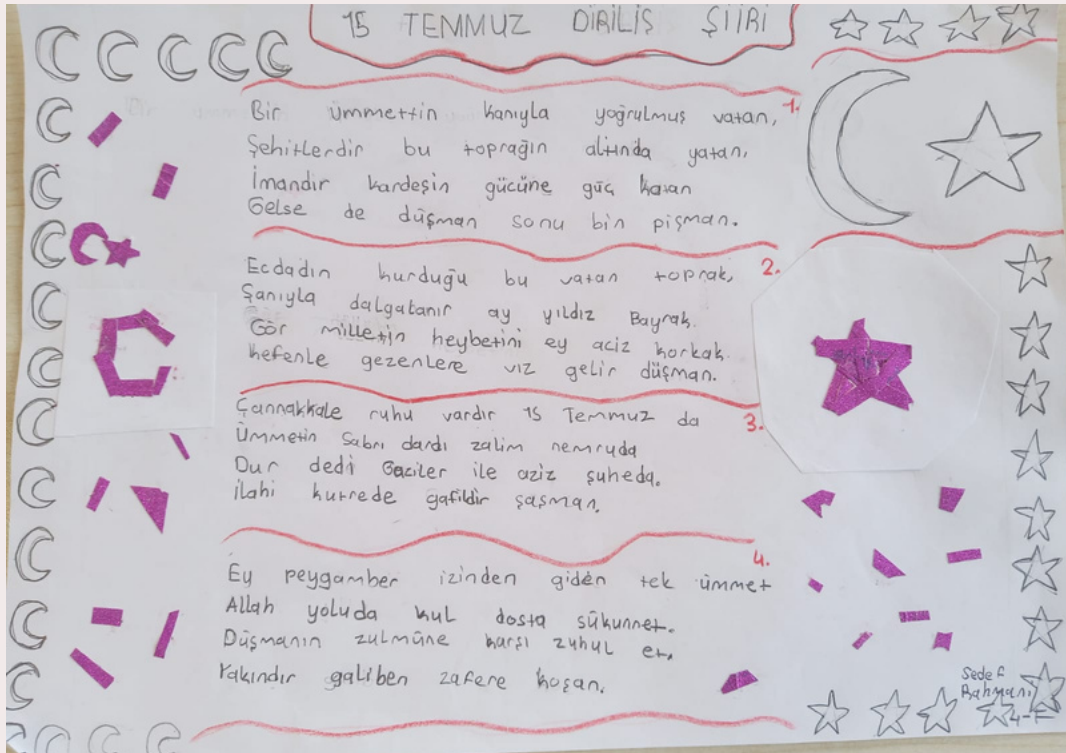 15 TEMMUZ DİRİLİŞ ŞİİRİ
1.
Bir ümmettin kanıyla yoğrulmuş vatan,
Şehitlerdir bu toprağın altında yatan,
İmandır kardeşin gücüne güç katan
Gelse de düşman sonu bin pişman.
2.
Ecdadın kurduğu bu vatan toprak,
Şanıyla dalgatanır ay yıldız Bayrak.
Gör milletin heybetini ey aciz korkak.
kefenle gezenlere vız gelir düşman.
3.
Çannakkale ruhu vardır 15 Temmuz da
Ümmetin Sabrı dardı zalim nemruda
Dur dedi Gaziler ile aziz şuheda.
ilahi kutrede gafildir şaşman.
4.
Ey peygamber izinden giden tek ümmet
Allah yoluda kul dosta sükunnet.
Düşmanın zulmüne karşı zuhul et.
Yakındır galiben zafere koşan.
Sedef
Rahmani
4-F